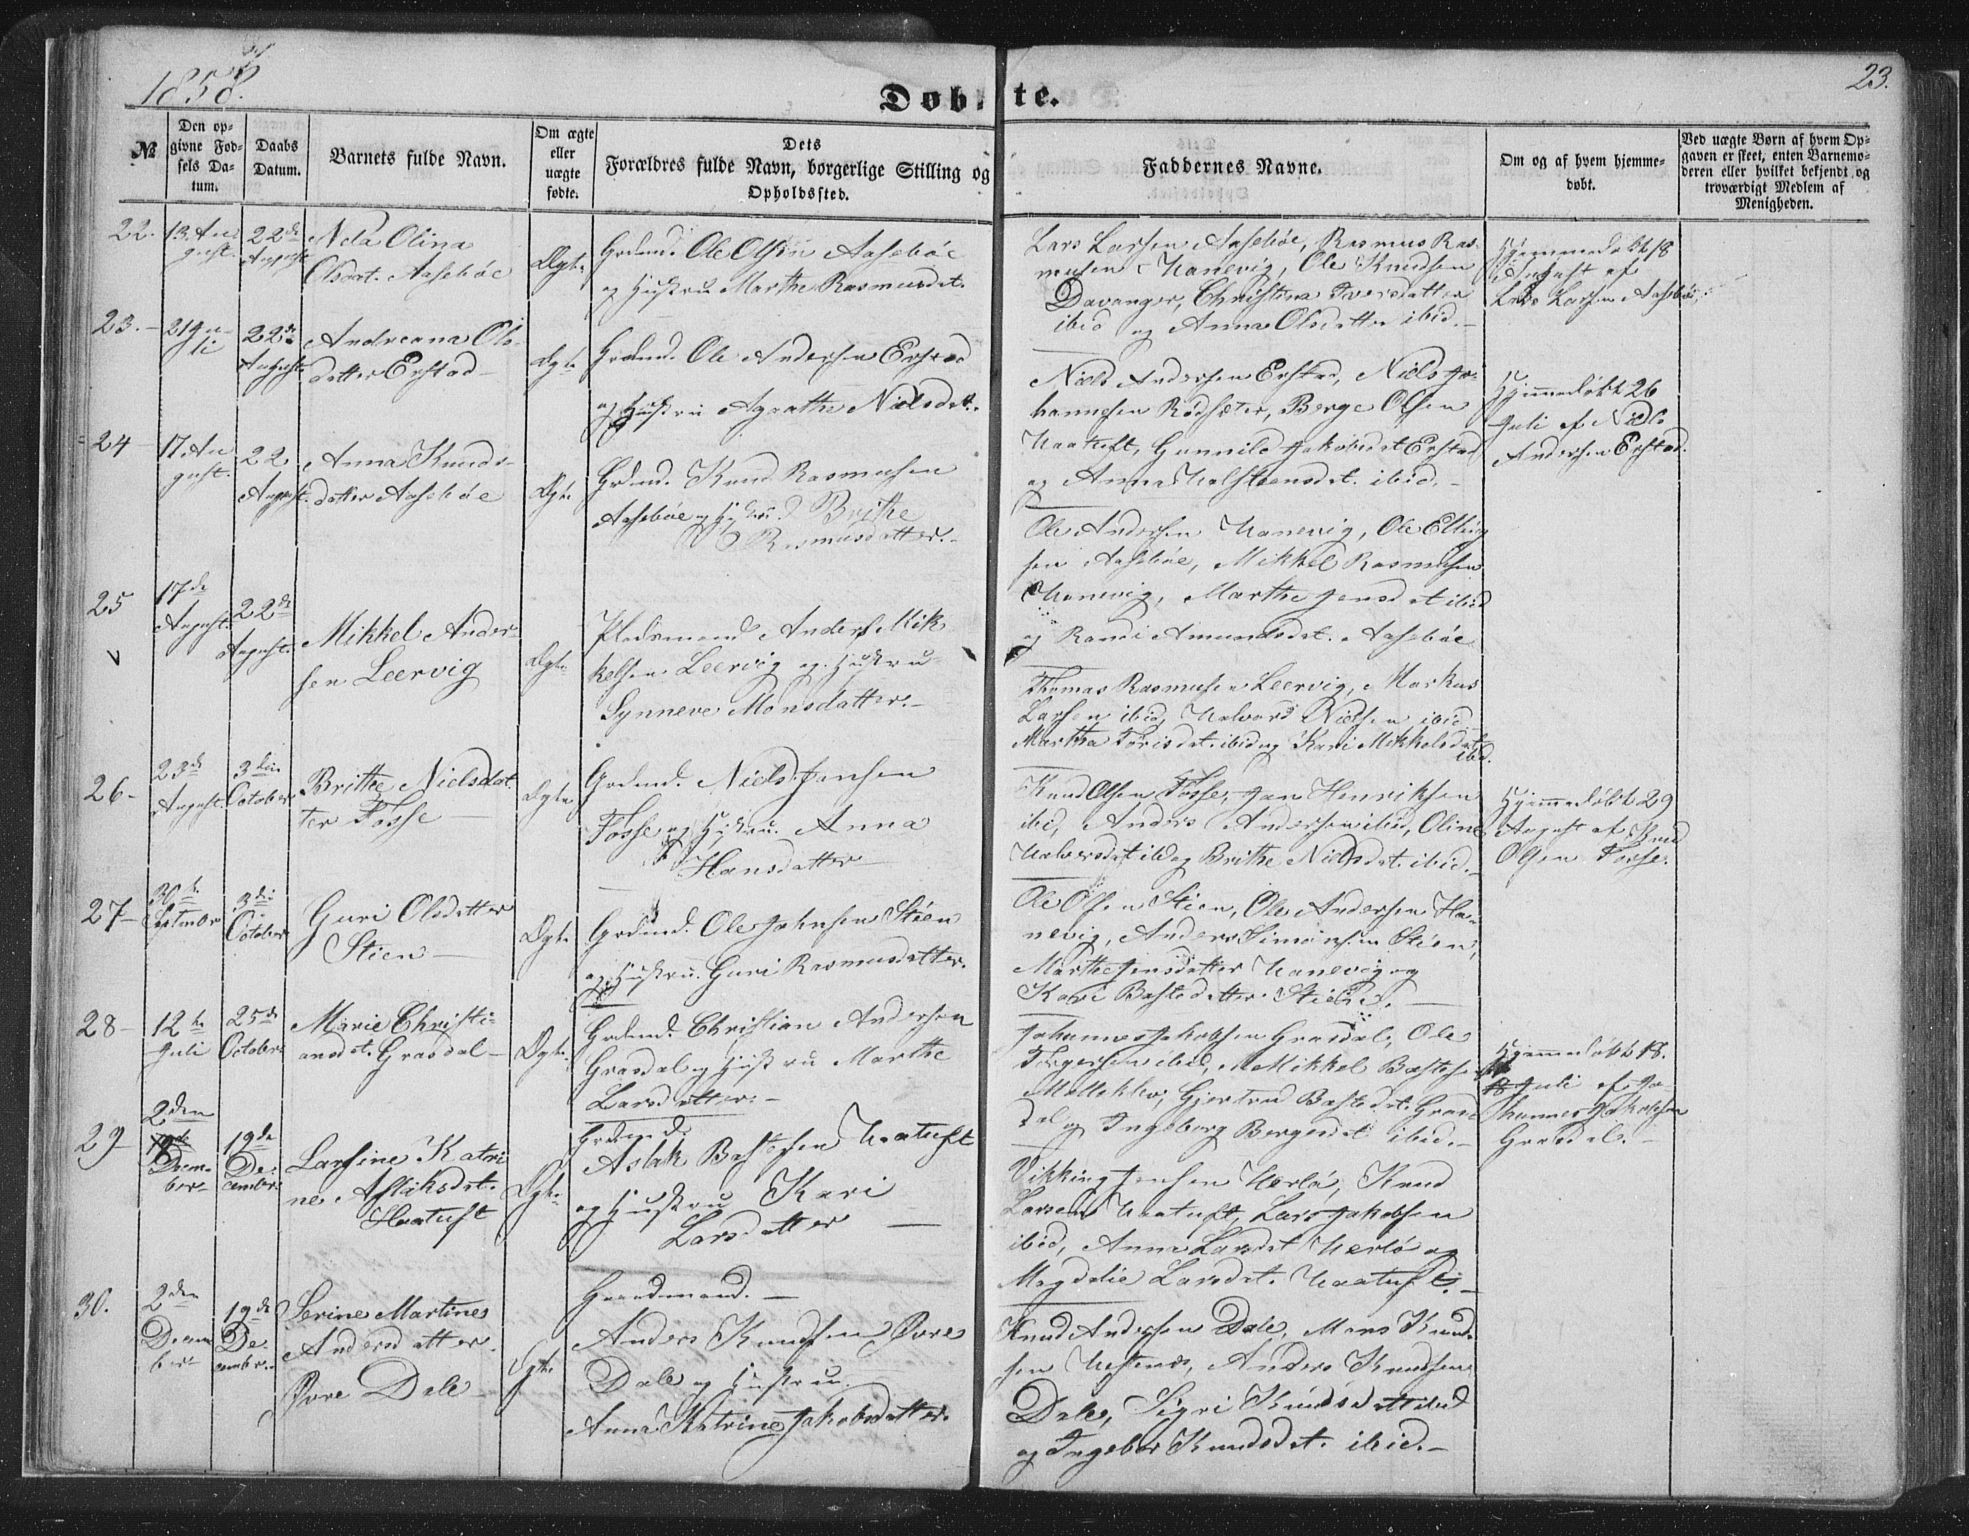 1858.
23.
Døbte.
№
Den opgivne Fødsels Datum.
Daabs Datum.
Barnets fulde Navn.
Om ægte eller uægte fødte.
Dets Forældres fulde Navn, borgerlige Stilling og Opholdssted.
Faddernes Navne.
Om og af hvem hjemmedøbt.
Ved uægte Børn af hvem Opgaven er skeet, enten Barnemoderen eller hvilket bekjendt og troværdigt Medlem af Menigheden.
22.
13. Au-
gust.
22de
August
Olina
Olsdat. Aasebøe
Ægte
Grdmd. Ole Olsen Aasebøe
og Hustru Marthe Rasmusdt.
Lars Larsen Aasebøe, Rasmus Ras-
musen Hanevig, Ole Knudsen
Davanger, Christina Iversdatter
ibid og Anna Olsdatter ibid.-
Hjemmedøbt 18
August af
Lars Larsen Aasebøe.
23.-
22de
August.
Andreana Ols-
datter Erstad-
Ægte
Grdmd. Ole Andersen Erstad
og Hustru Agathe Nielsdt.
Niels Andersen Erstad, Niels Jo-
hannesen Rødseter, Berge Olsen
Haatuft, Gunnild Jakobsdt Erstad
og Anna Halsteensdt. ibid.-
Hjemmedøbt 26
Juli af Niels
Andersen Erstad.
24
17. Au-
gust.
22.
August.
Anna Knuds-
datter Aasebøe
Ægte
Grdmd. Knud Rasmusen
Aasebøe og Hustru Brithe
Rasmusdatter.-
Ole Andersen Hanevig, Ole Elling-
sen Aasebøe, Mikkel Rasmusen
Hanevig, Marthe Jensdt ibid
og Randi Amundsdt. Aasebøe
25
17de
August.
22de
August.
Mikkel Ander-
sen Leervig
Ægte
Pladsmand Anders Mik-
kelsen Leervig og Hustru
Synneve Monsdatter.-
Thomas Rasmusen Leervig, Markus
Larsen ibid, Halvard Nielsen ibid
Martha Torisdt. ibid og Kari Mikkelsdt
ibd.
26-
23de
August.
3die
October
Brithe Nielsdat-
ter Fosse-
Ægte
Grdmd. Niels Jansen
Fosse og Hustru Anna
Hansdatter-
Knud Olsen Fosse, Jan Henriksen
ibid, Anders Andersen ibid, Oline
Halvorsdt ibid og Brithe Nielsdt. ibid.-
Hjemmedøbt 29
August af Knud
Olsen Fosse.
27-
3die
October
Guri Olsdatter
Stien-
Ægte
Grdmd. Ole Johnsen Stien
og Hustru Guri Rasmusdatter.
Ole Olsen Stien, Ole Andersen Ha-
nevig, Anders Simonsen Stien,
Marthe Jensdatter Hanevig og
Kari Bastedatter Stien.-
28-
12te
Juli
25de
October
Marie Christi-
ansdt. Grasdal-
Ægte
Grdmd. Christian Andersen
Grasdal og Hustru Marthe
Larsdatter.-
Johannes Jakobsen Grasdal, Ole
Torgersen ibid, Mikkel Bastesen
Mølleklev, Gjertrud Bastedt. Gras-
dal og Ingeborg Bergesdt ibid.-
Hjemmedøbt 18.
Juli af Jo-
hannes Jakobsen
Grasdal.-
29-
2den
Decem-
ber-
19de
De-
cember.
Larsine Katri-
ne Aslaksdt.
Haatuft
Ægte
Grdmd.
Aslak Bastesen Haatuft
og Hustru Kari
Larsdatter-
Vikking Jensen Herlø, Knud
Larsen Haatuft, Lars Jakobsen
ibid, Anna Larsdt Herlø og
Magdalie Larsdt. Haatuft.-
30.
2den
Decem-
ber
19de
De-
cember.
Serine Martines
Andersdatter
Øvre Dale-
Ægte
Gaardmand.-
Anders Knudsen Øvre
Dale og Hustru
Anna Katrine Jakobsdatter.
Knud Andersen Dale, Mons Knud-
sen, Anders Knudsen
Dale, Sigri Knudsdatter ibid
og Ingebor Knudsdt. ibid.-